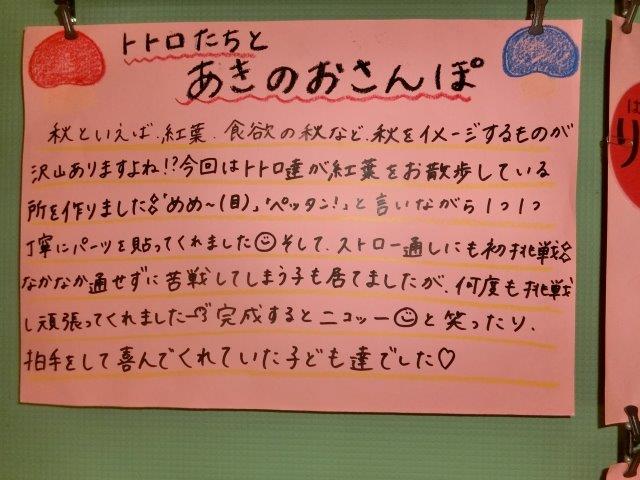 トトロたちと
あきのおさんぽ
秋といえば、紅葉、食欲の秋など、秋をイメージするものが
沢山ありますよね!?今回はトトロ達が紅葉をお散歩している
所を作りました♪"めめ〜(目)","ペッタン!"と言いながら1つ1つ
丁寧にパーツを貼ってくれました☺そして、ストロー通しにも初挑戦♪
なかなか通せずに苦戦してしまう子も居てましたが、何度も挑戦
し頑張ってくれました 完成するとニコッー☺と笑ったり、
拍手をして喜んでくれていた子ども達でした♡
は
り